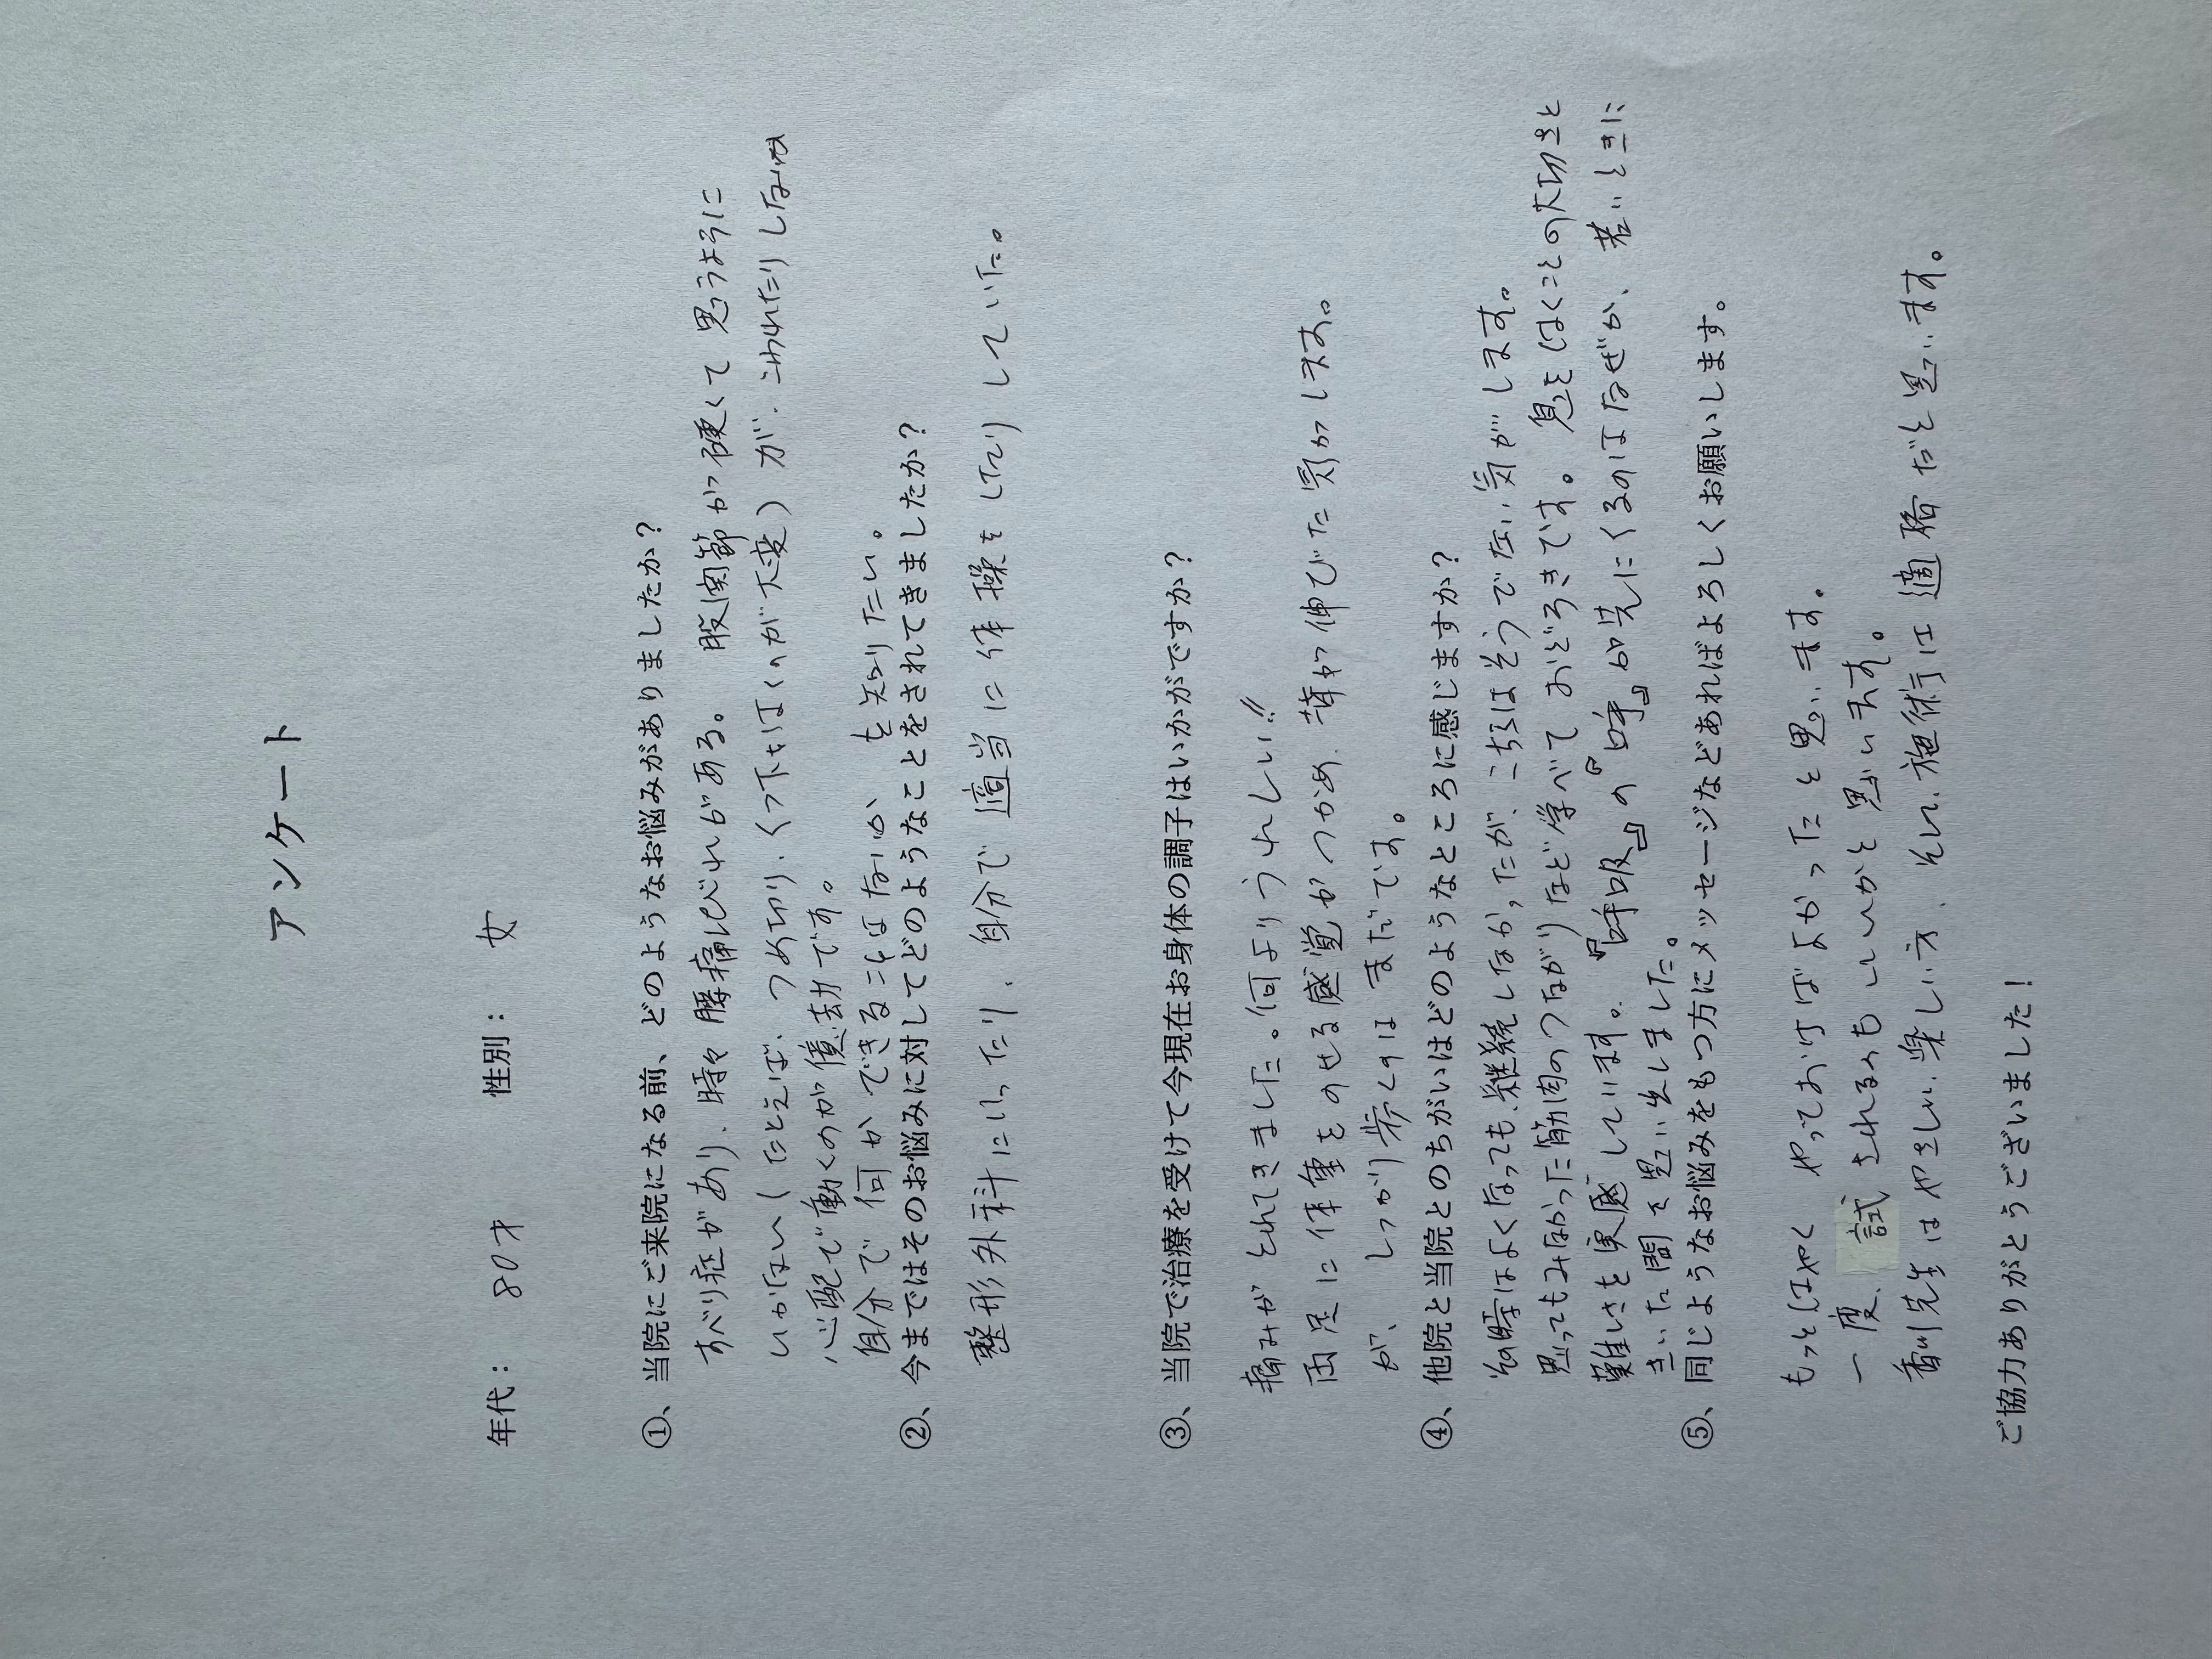 アンケート
年代： 80才 性別： 女
①、当院にご来院になる前、どのようなお悩みがありましたか？
すべり症があり、時々腰痛しびれがある。股関節が硬くて思うように
いかない（たとえば、つめ切り、くつ下をはくのが大変）が、こわれたりしないか
心配で動くのが億劫です。
自分で何かできることはないか、を知りたい。
②、今まではそのお悩みに対してどのようなことをされてきましたか？
整形外科に行ったり、自分で適当に体操をしたりしていた。
③、当院で治療を受けて今現在お身体の調子はいかがですか？
痛みがとれてきました。何よりうれしい!!
両足に体重をのせる感覚がつかめ、背が伸びた気がします。
が、しっかり歩くのはまだです。
④、他院と当院とのちがいはどのようなところに感じますか？
その時はよくなっても、継続しなかったが、こちらはそうでない気がします。
思ってもみなかった筋肉のつながりなど学べておどろきです。息をはくことの大切さと
難しさを実感しています。『呼吸』の『呼』が先にくるのはなぜか、若いときに
きいた間を思い出しました。
⑤、同じようなお悩みをもつ方にメッセージなどあればよろしくお願いします。
もっとはやくやっておけばよかったと思います。
一度、試されるのもいいかと思います。
香川先生はやさしい、楽しい方、それに施術は適格だと思います。
ご協力ありがとうございました！